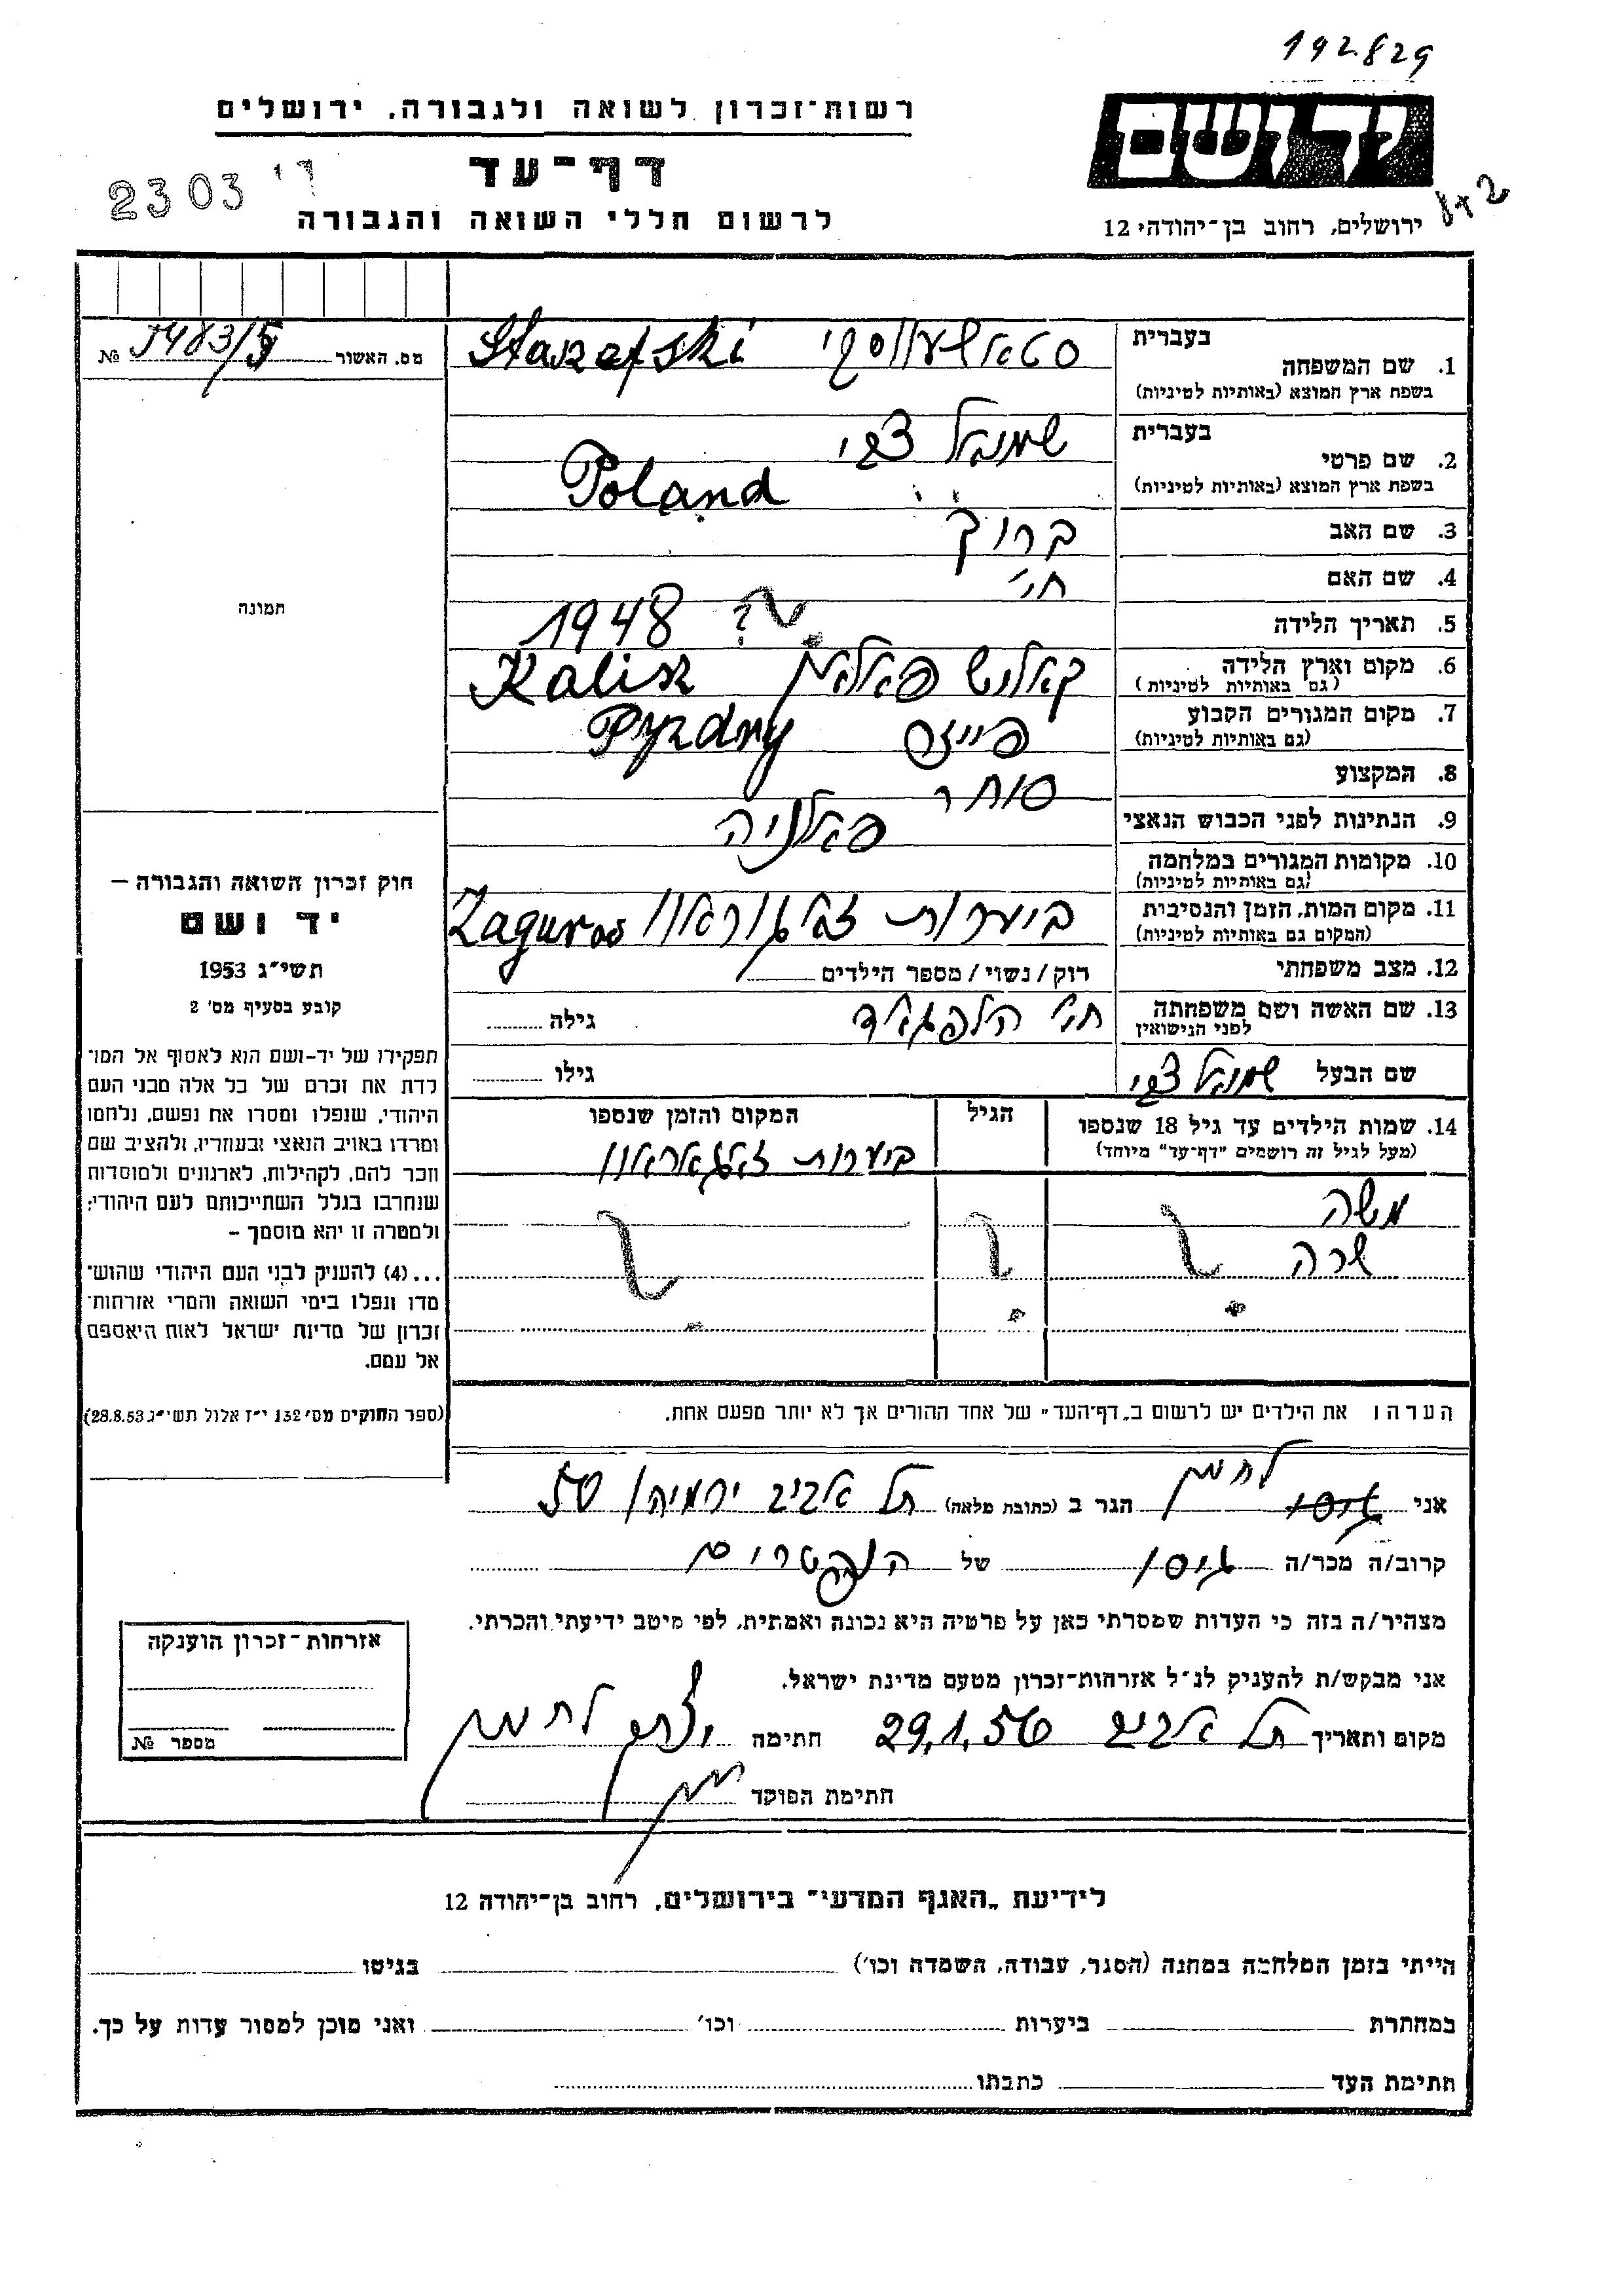 192.829
יד ושם
רשות־זכרון לשואה ולגבורה, ירושלים
דף־עד
לרשום חללי השואה והגבורה
2303
842
ירושלים, רחוב בן־יהודה 12
מס. האשור №
1. שם המשפחה
בעברית סטאשעווסקי Staszefski
בשפת ארץ המוצא (באותיות לטיניות)
2. שם פרטי
בעברית שמואל צבי
בשפת ארץ המוצא (באותיות לטיניות) Poland
3. שם האב ברוך
4. שם האם חי׳
5. תאריך הלידה ? 1948
6. מקום וארץ הלידה קאליש פאלין Kalisz
(גם באותיות לטיניות)
7. מקום המגורים הקבוע פייזר Pyzdry
(גם באותיות לטיניות)
8. המקצוע סוחר
9. הנתינות לפני הכבוש הנאצי פאלניה
10. מקומות המגורים במלחמה
(גם באותיות לטיניות)
11. מקום המות, הזמן והנסיבות ביערות Zaguroo
(המקום גם באותיות לטיניות)
12. מצב משפחתי רוק/נשוי/מספר הילדים
13. שם האשה ושם משפחתה לפני הנישואין חי׳ גילה
שם הבעל שמואל צבי גילו
14. שמות הילדים עד גיל 18 שנספו הגיל המקום והזמן שנספו
(מעל לגיל זה רושמים "דף־עד" מיוחד) ביערות
משה
שרה
תמונה
חוק זכרון השואה והגבורה –
יד ושם
תשי״ג 1953
קובע בסעיף מס׳ 2
תפקידו של יד-ושם הוא לאסוף אל המו־
לדת את זכרם של כל אלה מבני העם
היהודי, שנפלו ומסרו את נפשם, נלחמו
ומרדו באויב הנאצי ובעוזריו, ולהציב שם
וזכר להם, לקהילות, לארגונים ולמוסדות
שנחרבו בגלל השתייכותם לעם היהודי;
ולמטרה זו יהא מוסמך –
...(4) להעניק לבני העם היהודי שהוש־
מדו ונפלו בימי השואה והמרי אזרחות־
זכרון של מדינת ישראל לאות היאספם
אל עמם.
(ספר החוקים מס׳ 132 י״ז אלול תשי״ג 28.8.53)
הערה: את הילדים יש לרשום ב„דף־העד״ של אחד ההורים אך לא יותר מפעם אחת.
אני לחמן הגר ב (כתובת מלאה) תל אביב ירמיהו 50
קרוב/ה מכר/ה גיסו של הנפטרים
מצהיר/ה בזה כי העדות שמסרתי כאן על פרטיה היא נכונה ואמתית, לפי מיטב ידיעתי והכרתי.
אני מבקש/ת להעניק לנ״ל אזרחות־זכרון מטעם מדינת ישראל.
מקום ותאריך תל אביב 29.1.56 חתימה יצחק לחמן
חתימת הפוקד
אזרחות־זכרון הוענקה
מספר №
לידיעת „האגף המדעי״ בירושלים, רחוב בן־יהודה 12
הייתי בזמן המלחמה במחנה (הסגר, עבודה, השמדה וכו׳) בגיטו
במחתרת ביערות וכו׳ ואני מוכן למסור עדות על כך.
חתימת העד כתבתו